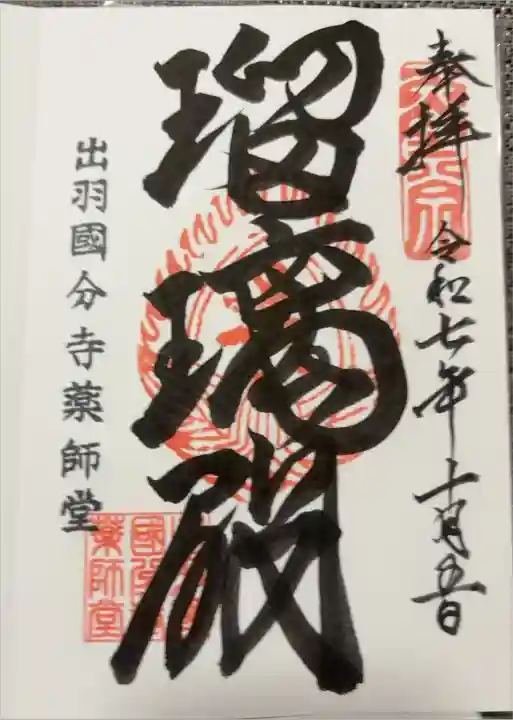 奉拝
令和七年十月五日
瑠璃殿
出羽國分寺薬師堂
薬師堂